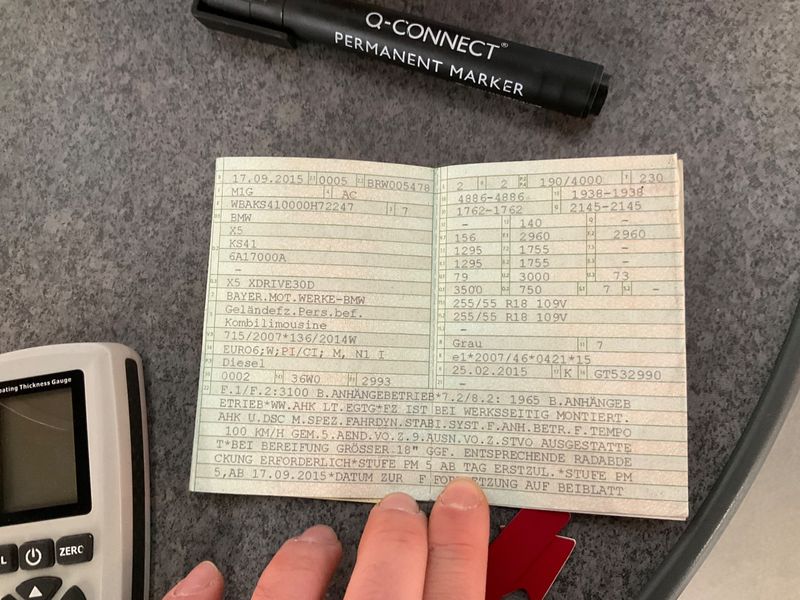 Q-CONNECT®
PERMANENT MARKER
17.09.2015 0005 BRW005478
M1G AC
WBAKS410000H72247 7
BMW
X5
KS41
6A17000A
–
X5 XDRIVE30D
BAYER.MOT.WERKE-BMW
Geländefz.Pers.bef.
Kombilimousine
715/2007*136/2014W
EURO6;W;PI/CI; M, N1 I
Diesel
0002 36W0 2993
2 2 190/4000 230
4886-4886 1938-1938
1762-1762 2145-2145
– 140 –
156 2960 2960
1295 1755 –
1295 1755 –
79 3000 73
3500 750 7 –
255/55 R18 109V
255/55 R18 109V
–
Grau 7
e1*2007/46*0421*15
25.02.2015 K GT532990
F.1/F.2:3100 B.ANHÄNGEBETRIEB*7.2/8.2: 1965 B.ANHÄNGER
ETRIEB*WW.AHK LT.EGTG*FZ IST BEI WERKSSEITIG MONTIERT.
AHK U.DSC M.SPEZ.FAHRDYN.STABI.SYST.F.ANH.BETR.F.TEMPO
100 KM/H GEM.5.AEND.VO.Z.9.AUSN.VO.Z.STVO AUSGESTATTE
T*BEI BEREIFUNG GRÖSSER.18" GGF. ENTSPRECHENDE RADABDE
CKUNG ERFORDERLICH*STUFE PM 5 AB TAG ERSTZUL.*STUFE PM
5,AB 17.09.2015*DATUM ZUR F FORTSETZUNG AUF BEIBLATT
oating Thickness Gauge
ZERO